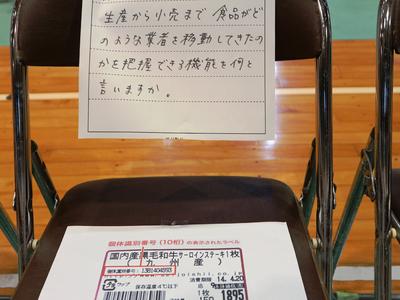 生産から小売まで 食品がど
のような業者を移動してきたの
かを把握できる機能を何と
言いますか。
個体識別番号(10桁)の表示されたラベル
国内産黒毛和牛サーロインステーキ1枚
(九州産)
個体識別番号:
消費期限 14. 4.20
保存温度4℃以下
1895